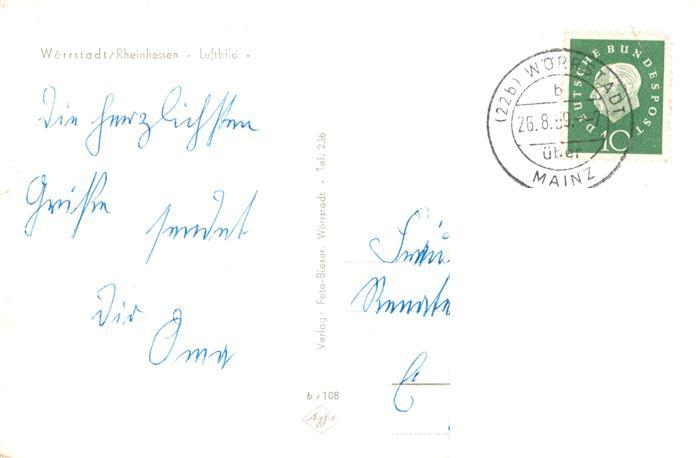 Wörrstadt/Rheinhessen - Luftbild -
Die herzlichsten
Grüße
sendet
Dir
Oma
Verlag: Foto-Bieser, Wörrstadt - Tel. 236
6/108
Agfa
DEUTSCHE BUNDESPOST
10
(22b) WÖRRSTADT
b
26.8.59.
über
MAINZ
Renate